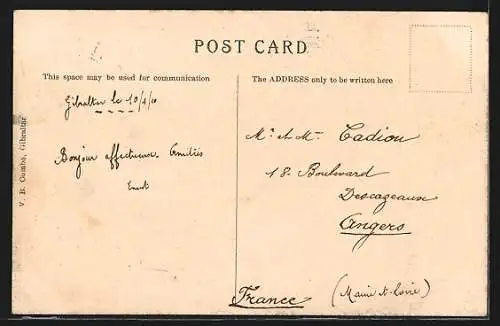 POST CARD
This space may be used for communication
The ADDRESS only to be written here
Gibraltar le 10/4/10
Bonjour affectueux. Amitiés
Ernest
Mr et Mme Cadiou
18. Boulevard
Descazeaux
Angers
(Maine et Loire)
France
V. B. Cumbo, Gibraltar